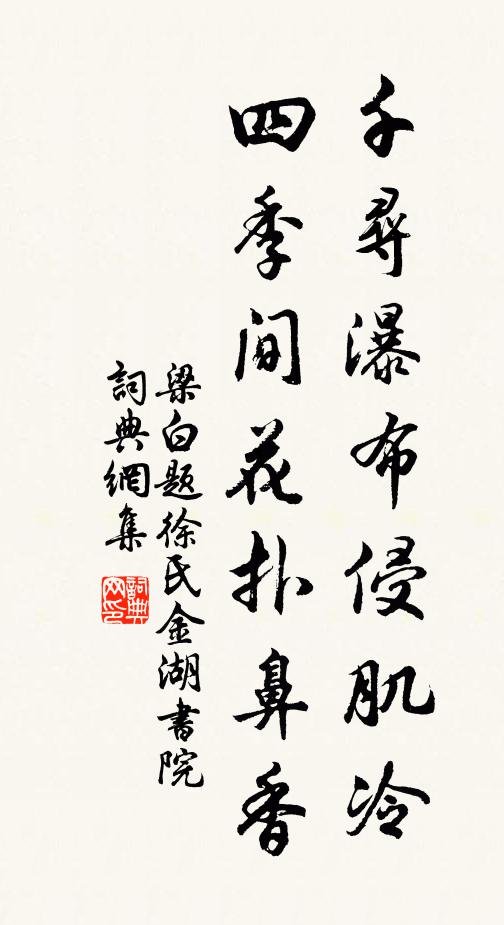 千尋瀑布侵肌冷
四季间花扑鼻香
梁白题徐氏金湖書院
詞典網集
詞典网印